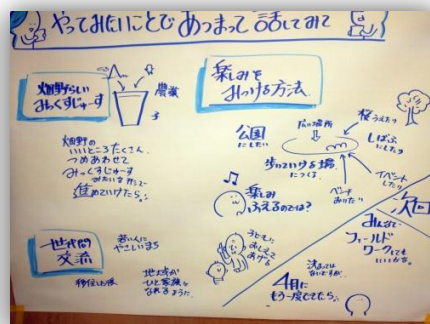 やってみたいことで あつまって 話してみて
畑野らしい
みっくすじゅーす
農業
畑野の
いいところたくさん
つめあわせて
みっくすじゅーす
みたいな形で
進めていけたら
楽しみを
みつける方法
公園
にしたい
広い場所
桜うえたり
しばふ
にしたり
歩いていける場
につくる
イベント
したり
ベンチ
おいたり
楽しみ
ふえるのでは?
世代間
交流
若い人に
やさしいまち
移住した後
地域が
ひと家族に
なれるように
子どもに
おしえて
あげる
次回
みんなで
フィールド
ワークしても
いいかな。
決まっては
ないですが、
4月に
もう一度できたら